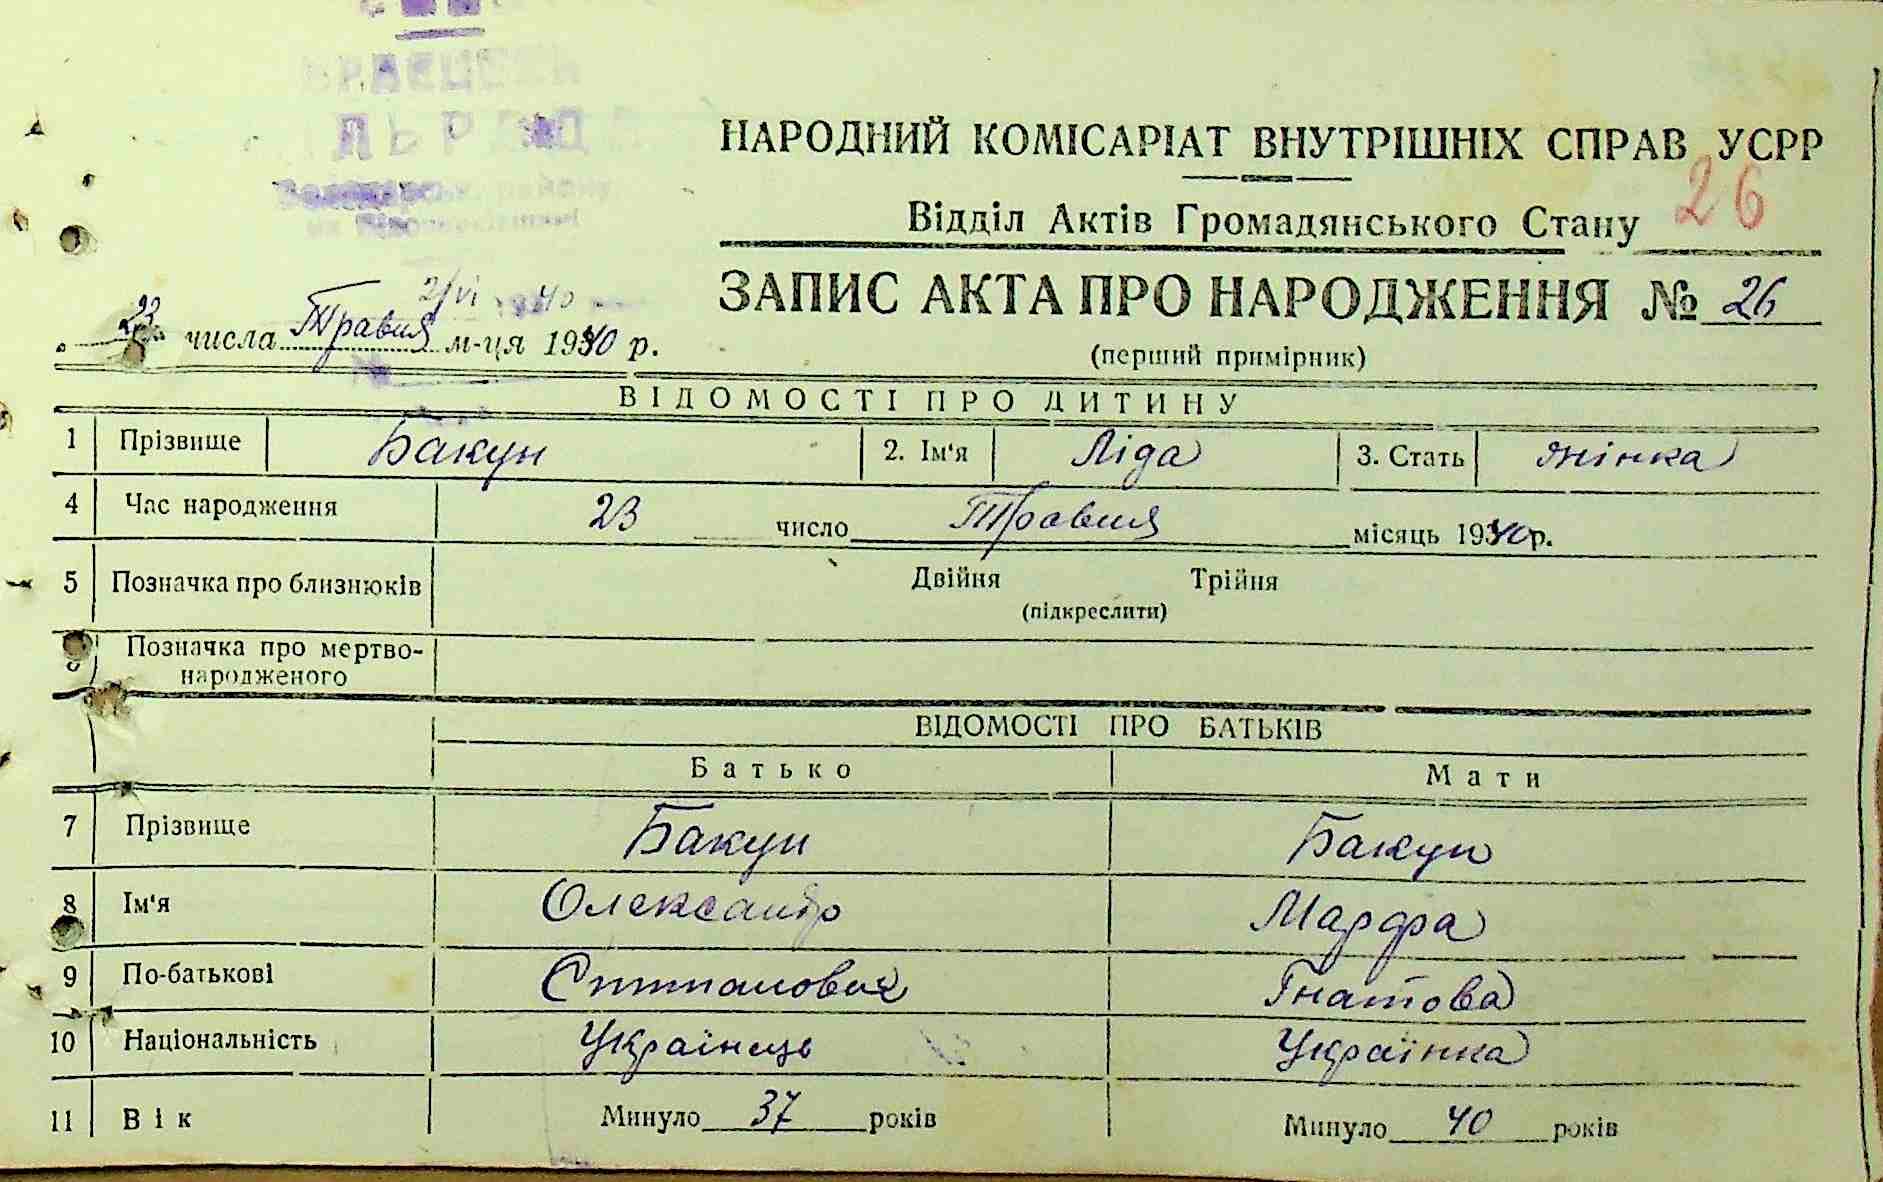 НАРОДНИЙ КОМІСАРІАТ ВНУТРІШНІХ СПРАВ УСРР
26
Відділ Актів Громадянського Стану
ЗАПИС АКТА ПРО НАРОДЖЕННЯ № 26
(перший примірник)
2/VI 1940
23 числа Травня м-ця 1940 р.
ВІДОМОСТІ ПРО ДИТИНУ
1 Прізвище Бакун 2. Ім'я Ліда 3. Стать жінка
4 Час народження 23 число Травня місяць 1940 р.
5 Позначка про близнюків Двійня Трійня
(підкреслити)
6 Позначка про мертво-
народженого
ВІДОМОСТІ ПРО БАТЬКІВ
Батько Мати
7 Прізвище Бакун Бакун
8 Ім'я Олександр Марфа
9 По-батькові Гнатова
10 Національність Українець Українка
11 Вік Минуло 37 років Минуло 40 років